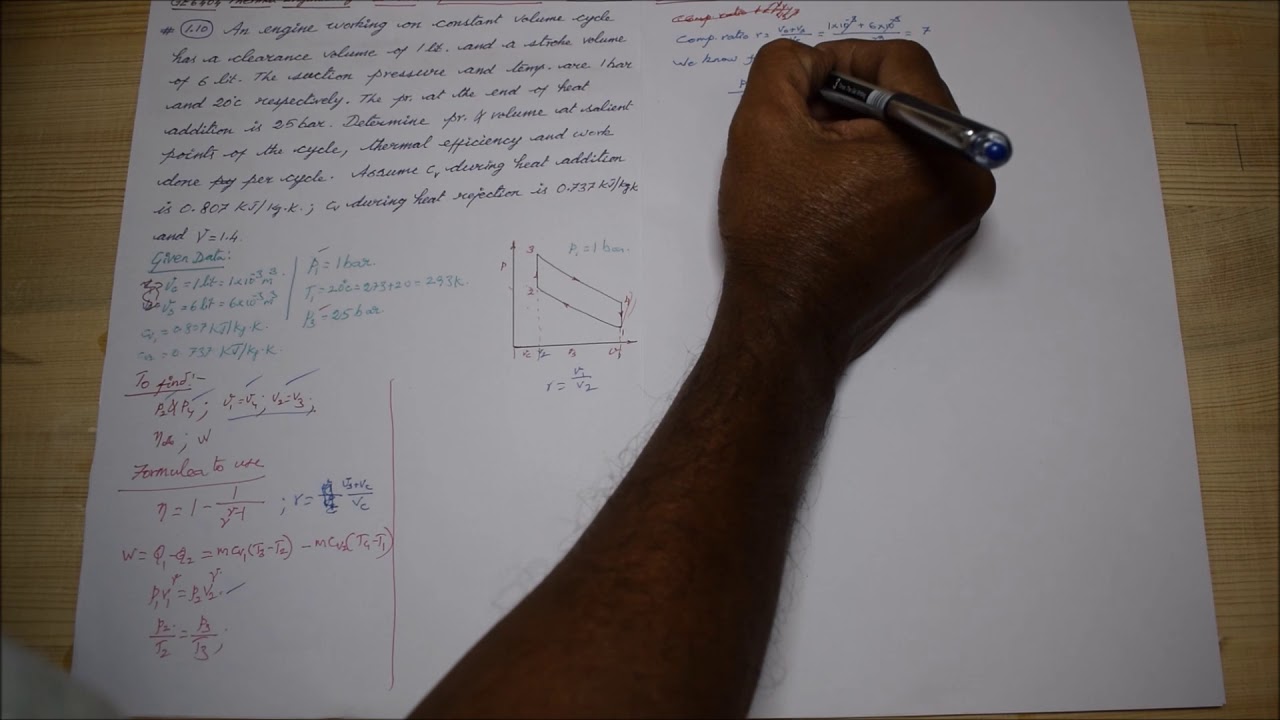 # 1.10 An engine working on constant volume cycle
has a clearance volume of 1 lit. and a stroke volume
of 6 lit. The suction pressure and temp. are 1 bar
and 20°C respectively. The pr. at the end of heat
addition is 25 bar. Determine pr. & volume at salient
points of the cycle, thermal efficiency and work
done per cycle. Assume Cv during heat addition
is 0.807 KJ/kg.K.; Cv during heat rejection is 0.737 KJ/kg K
and γ = 1.4.
Given Data:
V2 = 1 lit = 1×10⁻³ m³
Vs = 6 lit = 6×10⁻³ m³
Cv1 = 0.807 KJ/kg.K.
= 0.737 KJ/kg.K.
P1 = 1 bar
T1 = 20°C = 273+20 = 293K.
P3 = 25 bar
To find:-
P2 & P4 ; V1 = V4 ; V2 = V3 ;
; W
Formulea to use
η = 1 - 1/r^(γ-1) ; r = Vs+Vc/Vc
W = Q1 - Q2 = mCv1(T3-T2) - mCv2(T4-T1)
P1V1^γ = P2V2^γ
P2/T2 = P3/T3 ;
P
3
2
4
P1 = 1 bar.
r = V1/V2
Comp. ratio r = = 1×10⁻³ + 6×10⁻³ = 7
We know